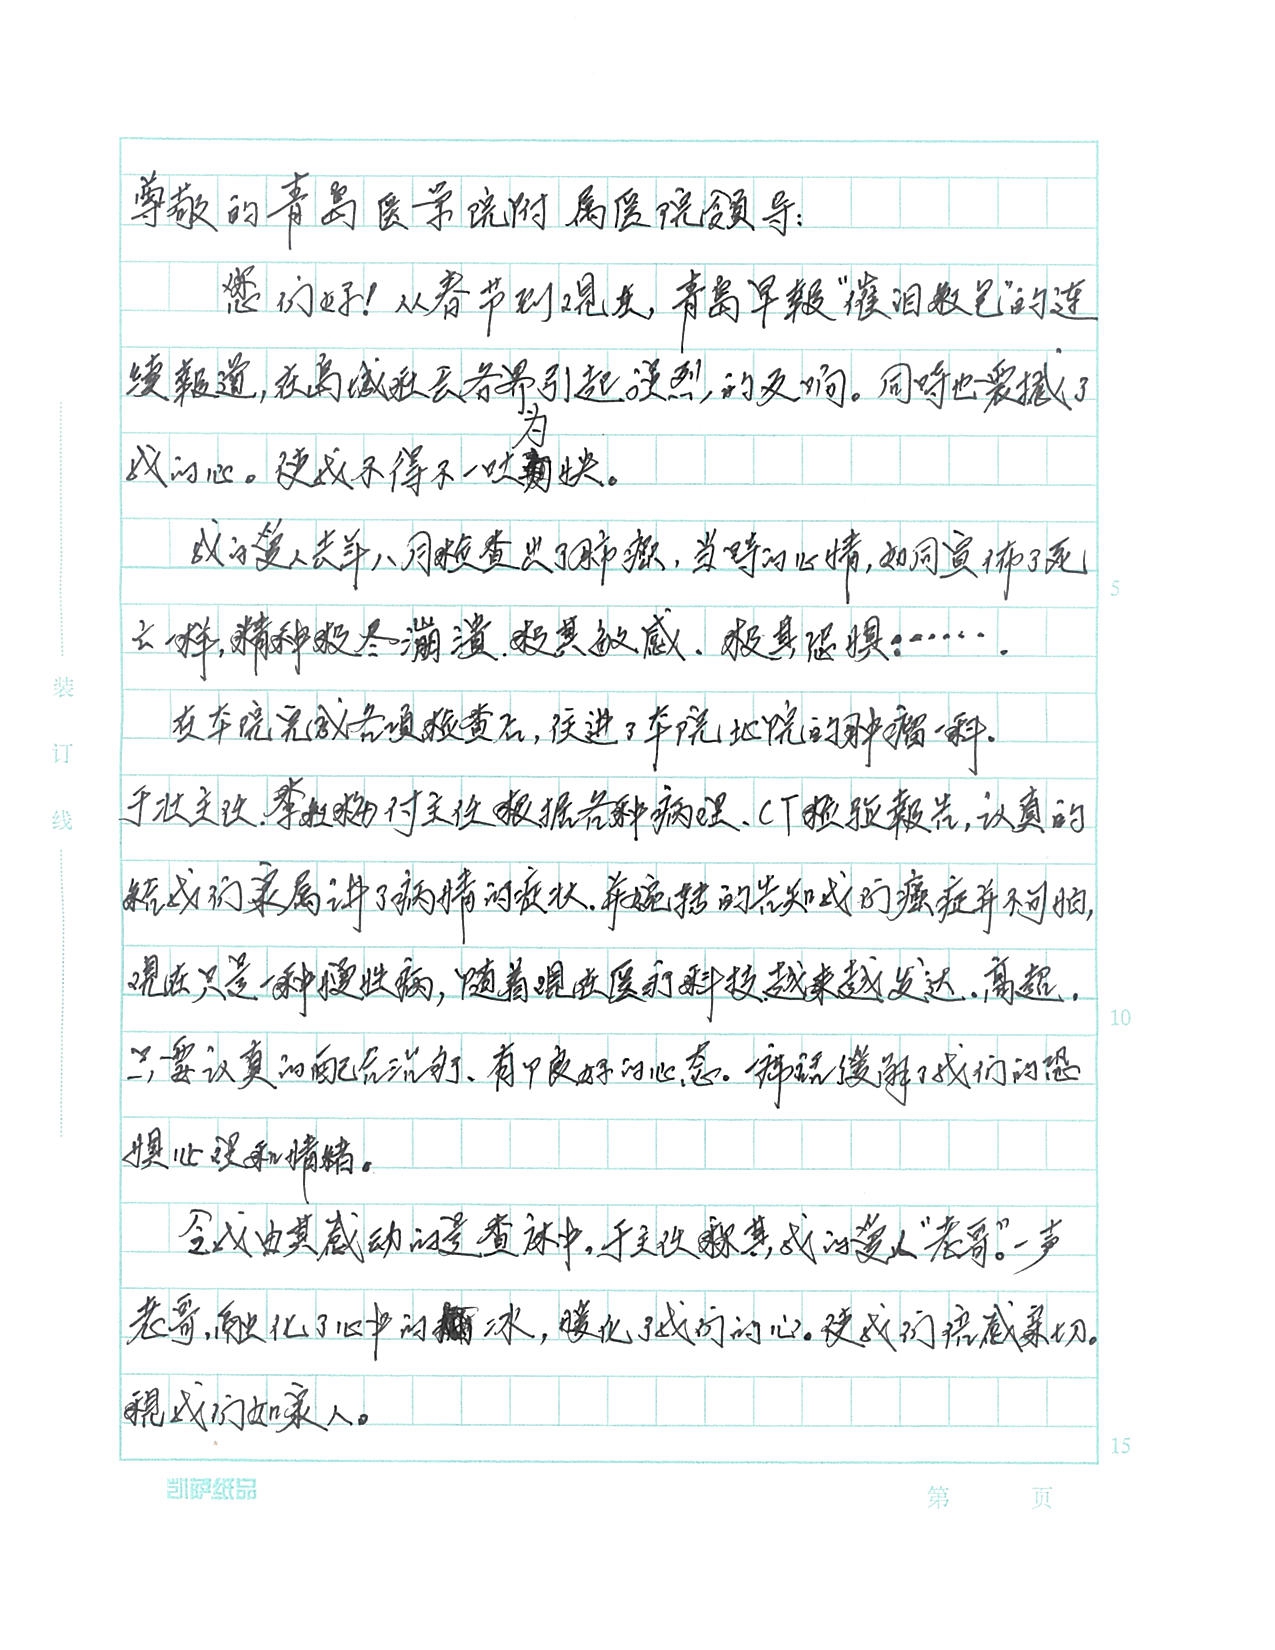 尊敬的青岛医学院附属医院领导:
您们好!从春节到现在,青岛早报"催泪敷包"的连
续報道,在高城社会各界引起强烈的反响。同时也震撼了
我的心。使我不得不一吐为快。
我的爱人去年八月检查出了肺癌,当时的心情,如同宣布了死
亡一样,精神极尽崩溃.极其敏感、极其恐惧:……
在本院完成各项检查后,住进了本院北院的肿瘤一科.
于壮主任.李敏付主任根据各种病理、CT检验報告,认真的
给我们家属讲了病情的症状.并婉转的告知我们癌症并不可怕,
现在只是一种慢性病,随着现在医疗科技越来越发达.高超.
只要认真的配合治疗、有个良好的心态。一席话缓解了我们的恐
惧心理和情绪。
令我由其感动的是查床中.于主任称其我的爱人"老哥"。一声
老哥,融化了心中的冰,暖化了我们的心.使我们倍感亲切.
视我们如家人。
装
订
线
5
10
15
凯萨纸品
第 页